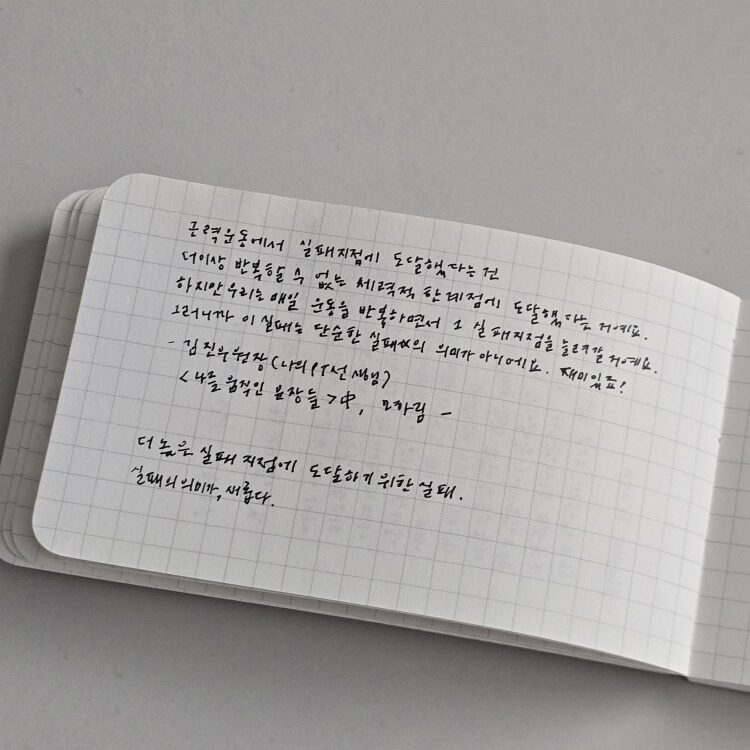 근력운동에서 실패지점에 도달했다는건
더이상 반복할 수 없는 체력적 한계점에 도달했다는 거예요.
하지만 우리는 매일 운동을 반복하면서 그 실패지점을 늘려갈거예요.
그러니까 이 실패는 단순한 실패의 의미가 아니에요. 재미있죠?
- 김진우원장(나의PT선생님)
<나를 움직인 문장들>中, 오하림 -
더 높은 실패지점에 도달하기위한 실패.
실패의 의미가, 새롭다.